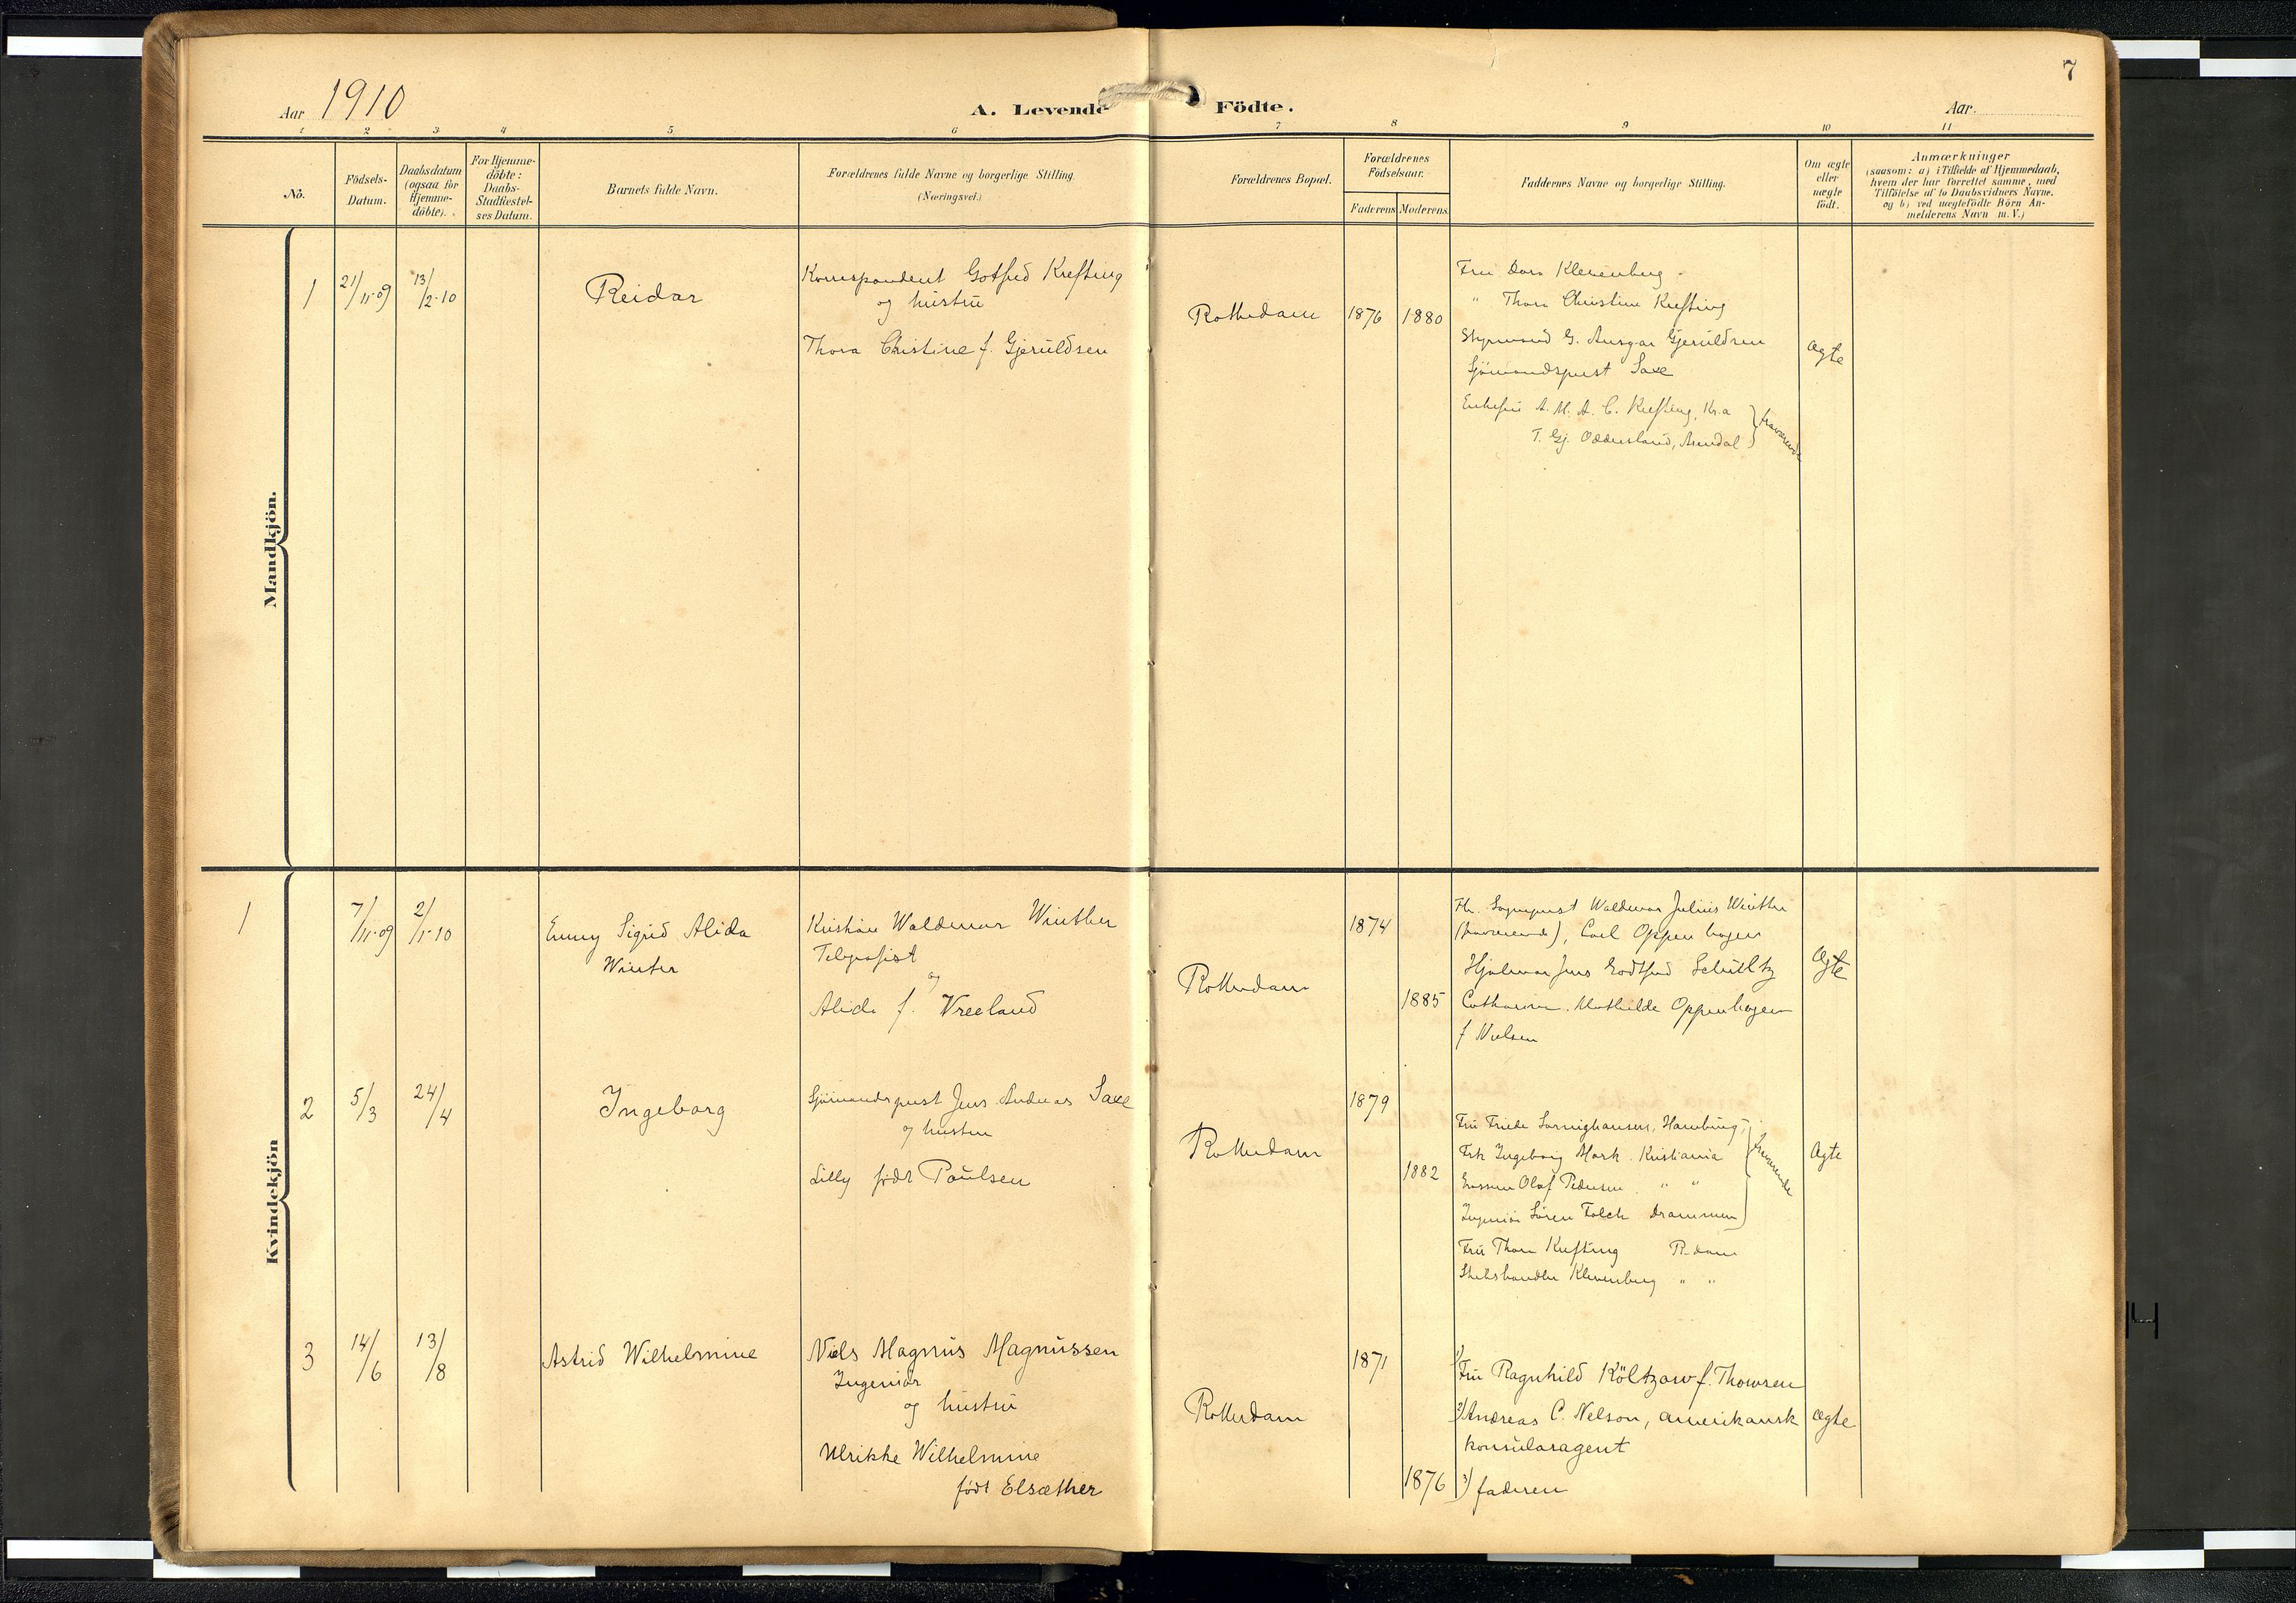 7
Aar 1910
A. Levende Födte.
Aar.
1 2 3 4 5 6 7 8 9 10 11
No.
Födsels-
Datum.
Daabsdatum
(ogsaa for
Hjemme-
döbte).
For Hjemme-
döbte:
Daabs-
Stadfæstel-
ses Datum.
Barnets fulde Navn.
Forældrenes fulde Navne og borgerlige Stilling.
(Næringsvei.)
Forældrenes Bopæl.
Forældrenes
Födselsaar.
Faderens Moderens.
Faddernes Navne og borgerlige Stilling.
Om ægte
eller
uægte
födt.
Anmærkninger
(saasom: a) i Tilfælde af Hjemmedaab,
hvem der har forrettet samme, med
Tilföielse af to Daabsvidners Navne.
og b) ved uægtefödte Börn An-
melderens Navn m. V.)
Mandkjön.
1
21/11-09
13/2-10
Reidar
Korrespondent Gotfred Krefting
og hustru
Thora Christine f. Gjeruldsen
Rotterdam
1876 1880
Fru Dora Klevenberg
" Thora Christine Krefting
Styrmand G. Ansgar Gjeruldsen
Sjömandsprest Saxe
Enkefru A. M. A. C. Krefting, Kr.a
T. Gj. Oddersland, Arendal
fraværende
ægte
Kvindekjön
1
7/11-09
2/1-10
Emmy Sigrid Alida
Winter
Kristian Waldemar Winther
Telegrafist
og
Alida f. Vreeland
Rotterdam
1874
1885
Hr. Sogneprest Waldemar Julius Winther
(fraværende), Carl Oppenhagen
Hjalmar Jens Godtfred Schultz
Catharina Mathilde Oppenhagen
f Nielsen
Ægte
2
5/3
24/4
Ingeborg
Sjömandsprest Jens Andreas Saxe
og hustru
Lilly född Paulsen
Rotterdam
1879
1882
Fru Friede Sarnighausen, Hamburg
Frk Ingeborg Mork Kristiania
Olaf Pedersen " "
Ingeniör Sören Falch Drammen
fraværende
Fru Thora Krefting R.dam
Skibshandler Klevenberg " "
Ægte
3
14/6
13/8
Astrid Wilhelmine
Niels Magnus Magnussen
Ingeniör
og hustru
Ulrikke Wilhelmine
född Elsæther
Rotterdam
1871
1876
1) Fru Ragnhild Költzow f. Thomsen
2) Andreas C. Nelson, amerikansk
konsularagent
3) faderen
ægte